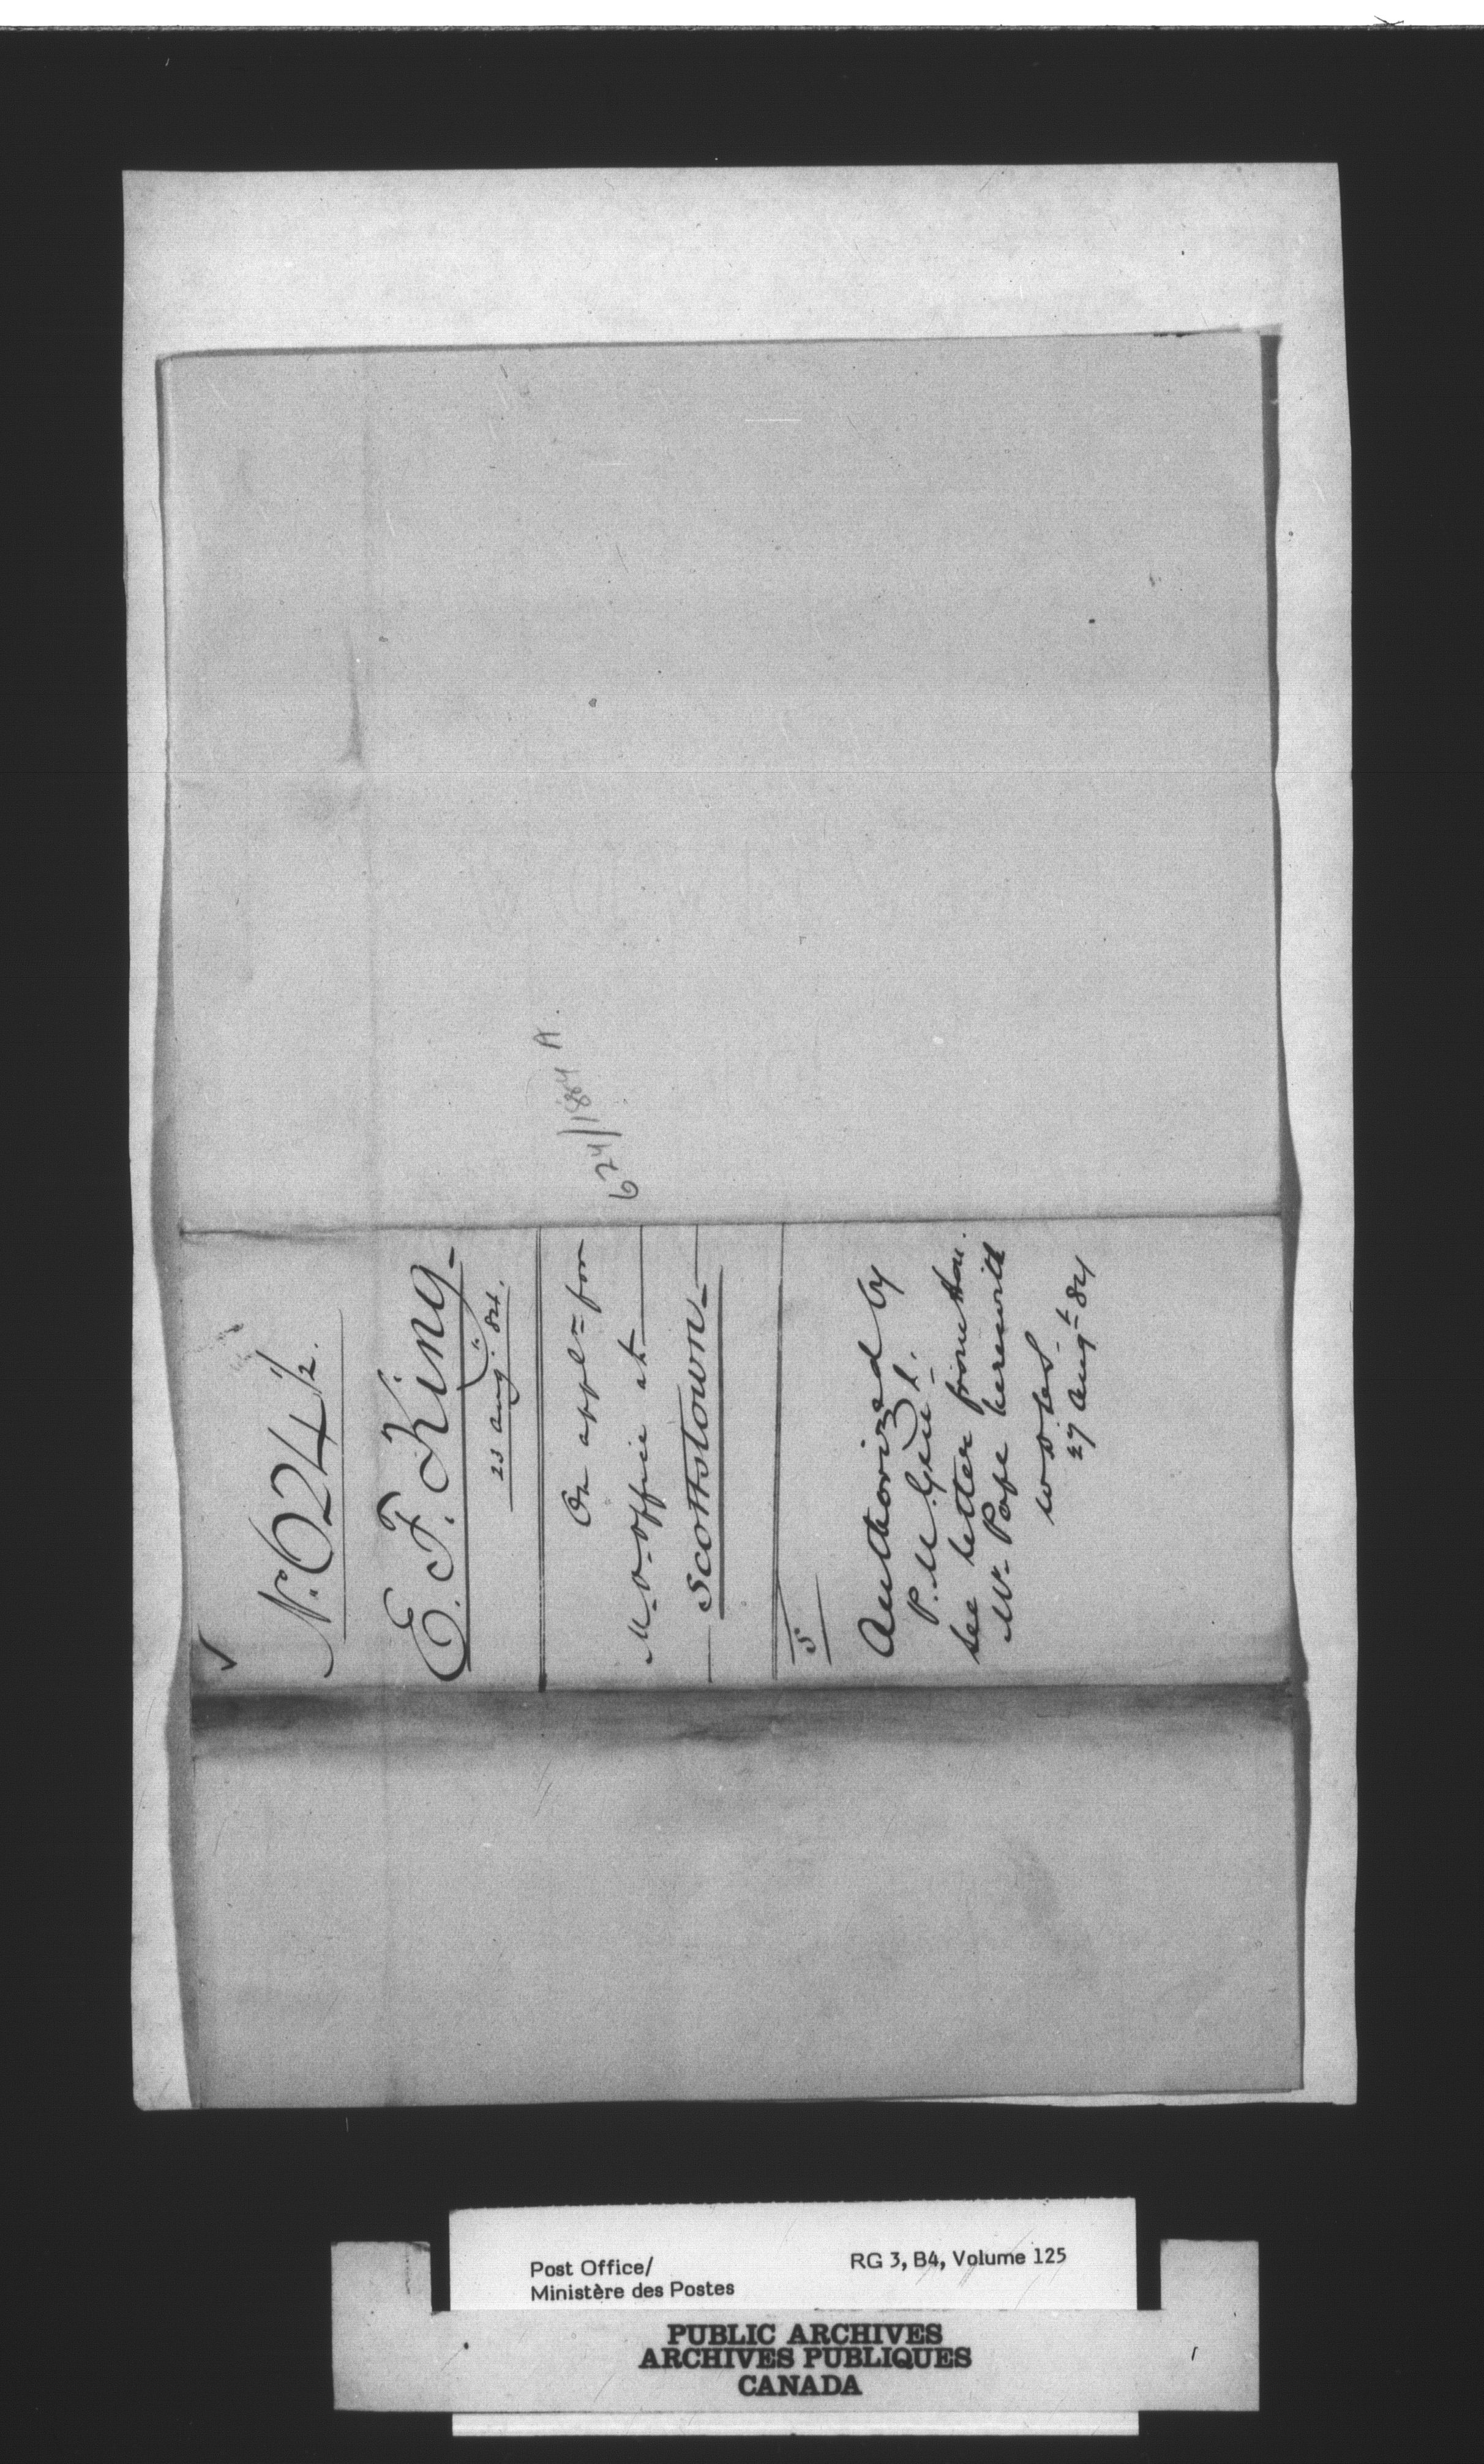 No. 624 1/2.
E. F. King
23 Aug. 84.
On appl= for
M-O-Office at
Scottstown
5
Authorized by
P. M. Gen'l.
See letter from Hon.
Mr. Pope herewith
27 Augt 84
624/1884 A.
Post Office/
Ministère des Postes
RG 3, B4, Volume 125
PUBLIC ARCHIVES
ARCHIVES PUBLIQUES
CANADA